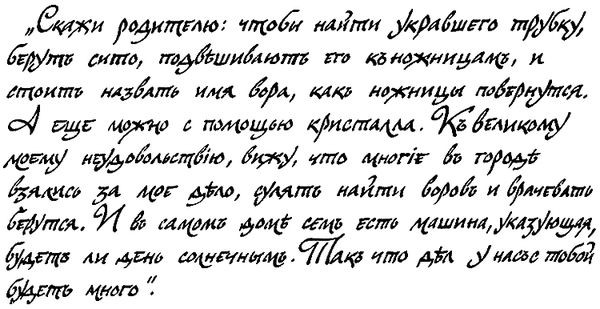 „Скажи родителю: чтоби найти укравшего трубку,
беруть сито, подвѣшивають его къ ножницамъ, и
стоить назвать имя вора, какъ ножницы повернутся.
А еще можно с помощью кристалла. Къ великому
моему неудовольствію, вижу, что многіе въ городѣ
взялись за мое дѣло, сулять найти воровъ и врачевать
берутся. И въ самомъ домѣ семъ есть машина, указующая,
будетъ ли день солнечнымъ. Такъ что дѣл у насъ с тобой
будеть много“.